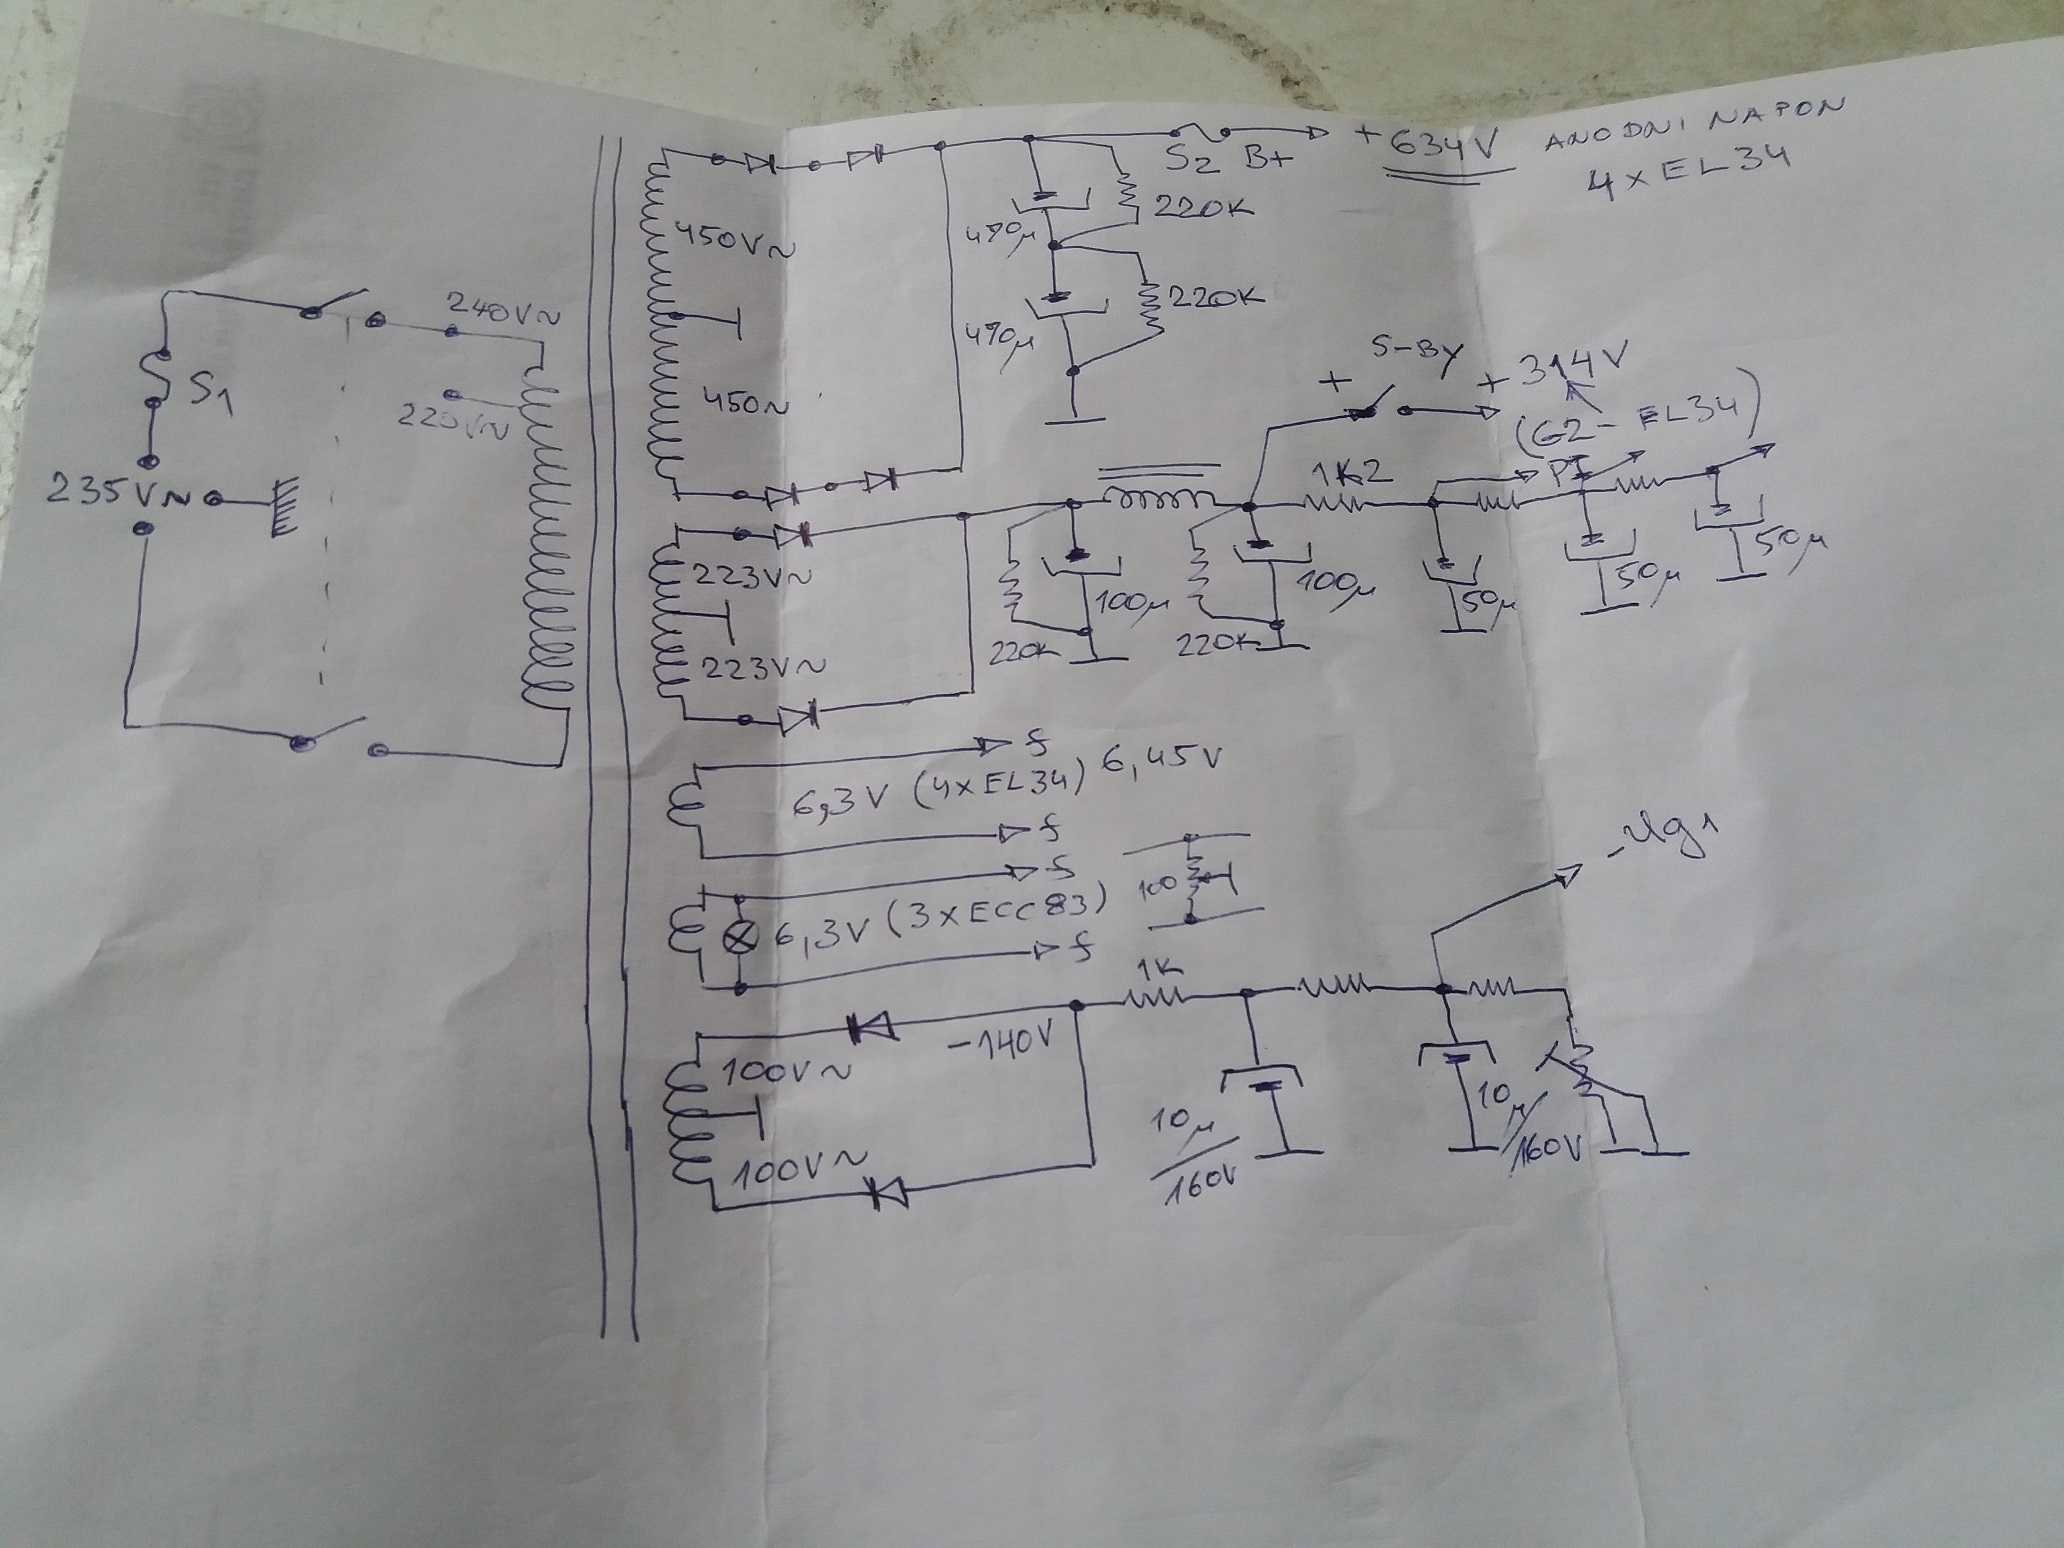 +634V ANODNI NAPON
4xEL34
S2 B+
450V~
220K
470µ
220K
470µ
450~
240V~
220V~
S1
235V~
S-BY
+ + 314V
(G2-EL34)
1K2
PI
223V~
100µ
100µ
50µ
50µ
50µ
220K
220K
223V~
f
6,3V (4xEL34) 6,45V
f
f
100
6,3V (3xECC83)
f
-Ug1
1K
-140V
100V~
10µ/160V
10µ/160V
100V~